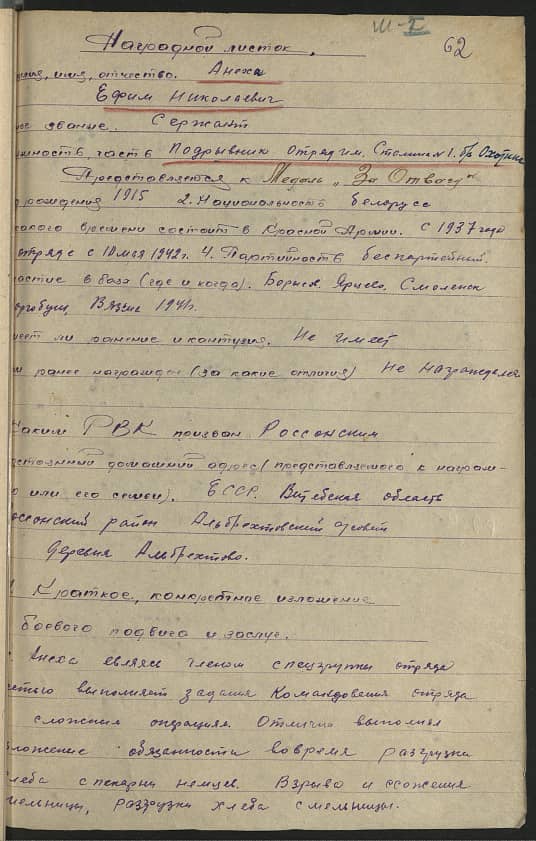 Ш-I 62
Наградной листок.
илия, имя, отчество. Анеха
Ефим Николаевич
ое звание. Сержант
жность, часть Подрывник Отряд им. Сталина №1. бр. Охотина
Представляется к Медаль „За Отвагу"
рождения 1915 2. Национальность белорусс
какого времени состоит в Красной Армии. С 1937 года
отряде с 10 мая 1942 г. 4. Партийность беспартейный.
астие в боях (где и когда). Борисов, Ярцево, Смоленск
орогобуш, Вязьме 1941 г.
меет ли ранение и кантузия. Не имеет
и ранее награжден (за какие отличия) Не награждался
Каким РВК призван Россонским
остоянный домашний адрес (представляемого к награм-
ю или его семьи). БССР. Витебская область
оссонский район Альбрехтовский с/совет
деревня Альбрехтово.
Краткое, конкретное изложение
боевого подвига и заслуг.
Анеха являясь членом спецгрупы отряда
стью выполняет задания Командования отряда
сложения операциях. Отлично выполнял
зложение обязанности вовремя разгрузки
хлеба с пекарни немцев. Взрыво и сожения
мельницы, разгрузки хлеба с мельницы.